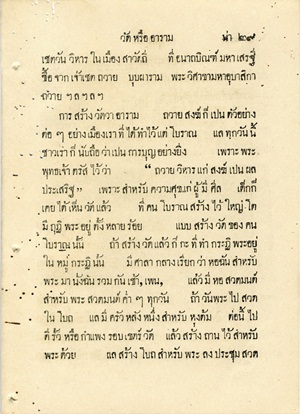 วัด หรือ อาราม น่า ๒๙
เชตวัน วิหาร ใน เมือง สาวัถี ที่ อนาถบิณฑ์ มหา เสรฐี
ซื้อ จาก เจ้าเชต ถวาย บุบผาราม พระ วิสาขามหาอุบาสิกา
ถวาย ฯ ล ฯ ล ฯ
การ สร้าง วัดวา อาราม ถวาย สงฆ์ ก็ เปน ตัวอย่าง
ต่อ ๆ อย่าง เมืองเรา ที่ ได้ ทำไว้ แต่ โบราณ แล ทุกวัน นี้
ชาวเรา ก็ นับถือ ว่า เปน การบุญ อย่างยิ่ง เพราะ พระ
พุทธเจ้า ตรัส ไว้ ว่า “ ถวาย วิหาร แก่ สงฆ์ เปน ผล
ประเสริฐ ” เพราะ สำหรับ ความศุขแก่ ผู้ มี ศีล เด็กก็
เคย ได้ เห็น วัด แล้ว ที่ คน โบราณ สร้าง ไว้ ใหญ่ โต
มี กุฎี พระ อยู่ ตั้ง หลาย ร้อย แบบ สร้าง วัด ของ คน
โบราณ นั้น ถ้า สร้าง วัด แล้ว ก็ กะ ที่ ทำ กุฎี พระ อยู่
ใน หมู่ กะฎี นั้น มี ศาลา กลาง เรียก ว่า หอฉัน สำหรับ
พระ มา นั่งฉัน รวม กัน เช้า, เพน, แล้ว มี หอ สวดมนต์
สำหรับ พระ สวดมนต์ ค่ำ ๆ ทุกวัน ถ้า วันพระ ไป สวด
ใน โบถ แล มี ครัว หลัง หนึ่ง สำหรับ หุงต้ม ต่อนี้ ไป
ก็ รั้ว หรือ กำแพง รอบ เขตร์ วัด แล้ว สร้าง ถาน ไว้ สำหรับ
พระ ด้วย แล สร้าง โบถ สำหรับ พระ ลง ประชุม สวด